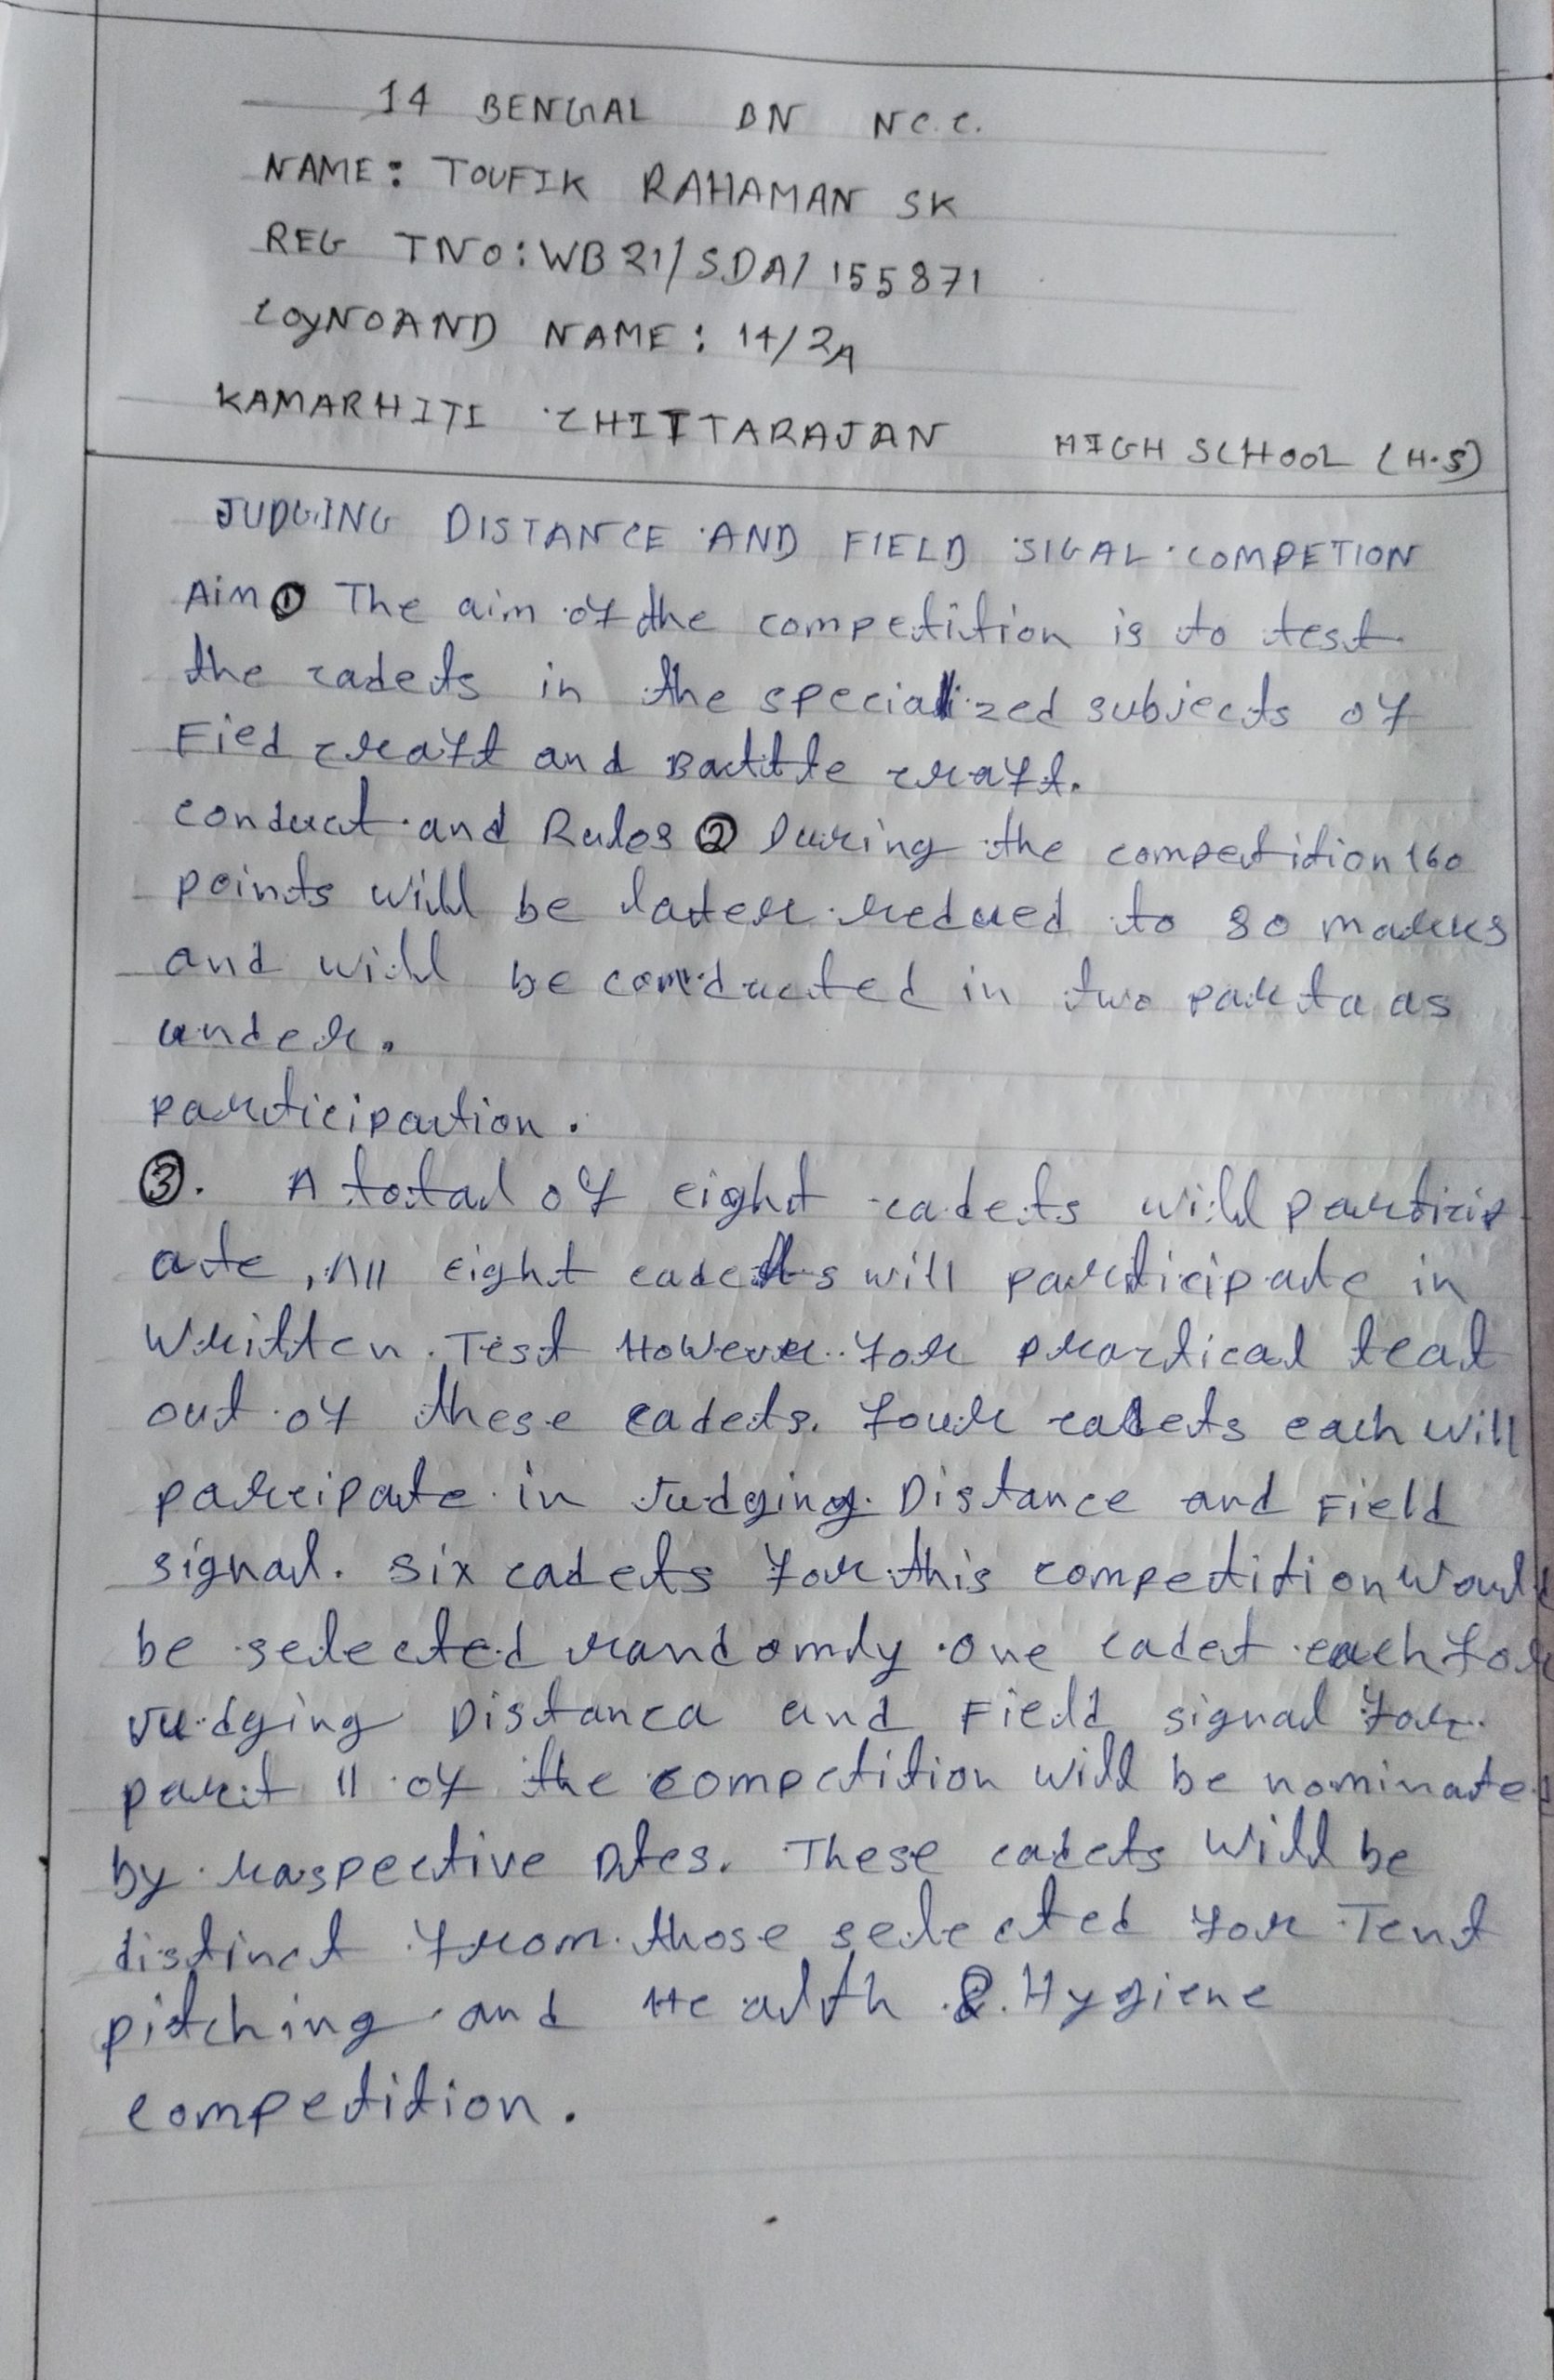 14 BENGAL BN NC.C.
NAME: TOUFIK RAHAMAN SK
REG TNO: WB21/SDA/155871
COyNOAND NAME: 14/2A
KAMARHITI CHITTARAJAN HIGH SCHOOL (H.S)
JUDGING DISTANCE AND FIELD SIGAL COMPETION
Aim ① The aim of the competition is to test
the cadets in the specialized subjects of
Fied craft and Battle craft.
conduct and Rules ② During the competition 160
points will be later redued to 80 marks
and will be conducted in two parta as
under.
participation.
③. A total of eight cadets will particip
ate, All eight cadets will participate in
written Test However for practical teat
out of these cadets. four cadets each will
parcipate in Judging Distance and Field
signal. six cadets for this competition would
be selected randomly one cadet each for
Judging Distanca and Field signal for
part II of the competition will be nominated
by raspective Dtes. These cadets will be
distinct from those selected for Tent
pitching and Health & Hygiene
competition.